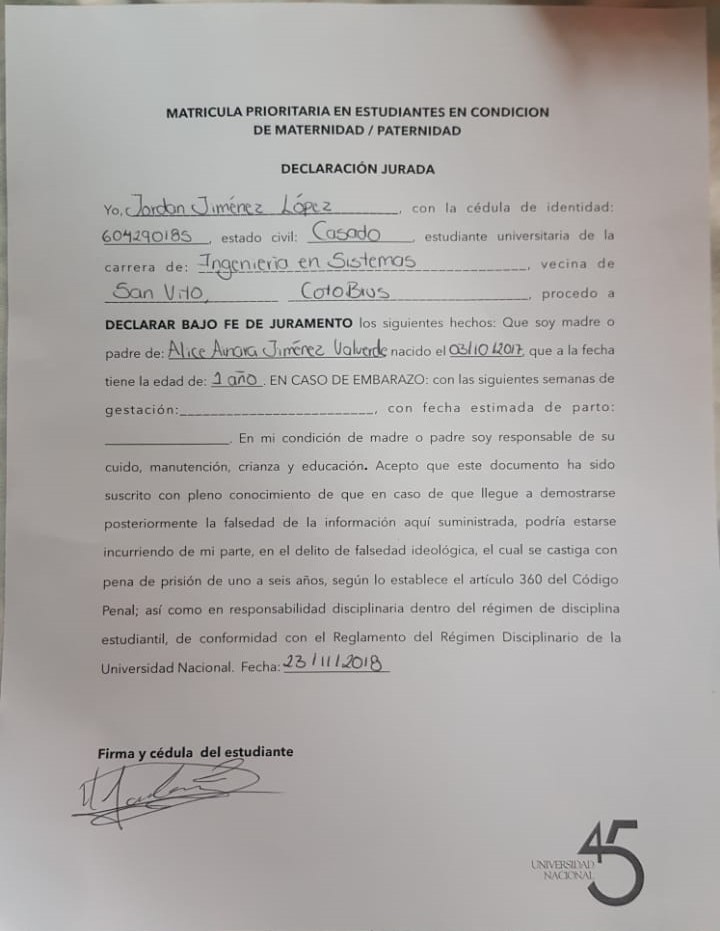 MATRICULA PRIORITARIA EN ESTUDIANTES EN CONDICION
DE MATERNIDAD / PATERNIDAD
DECLARACIÓN JURADA
Yo, Jordan Jiménez López, con la cédula de identidad:
604290185, estado civil: Casado, estudiante universitaria de la
carrera de: Ingenieria en Sistemas, vecina de
San Vito, Coto Brus, procedo a
DECLARAR BAJO FE DE JURAMENTO los siguientes hechos: Que soy madre o
padre de: Alice Jiménez Valverde nacido el 03/10/2017, que a la fecha
tiene la edad de: 1 año. EN CASO DE EMBARAZO: con las siguientes semanas de
gestación:__________________________, con fecha estimada de parto:
_________________. En mi condición de madre o padre soy responsable de su
cuido, manutención, crianza y educación. Acepto que este documento ha sido
suscrito con pleno conocimiento de que en caso de que llegue a demostrarse
posteriormente la falsedad de la información aquí suministrada, podría estarse
incurriendo de mi parte, en el delito de falsedad ideológica, el cual se castiga con
pena de prisión de uno a seis años, según lo establece el artículo 360 del Código
Penal; así como en responsabilidad disciplinaria dentro del régimen de disciplina
estudiantil, de conformidad con el Reglamento del Régimen Disciplinario de la
Universidad Nacional. Fecha: 23/11/2018
Firma y cédula del estudiante
45
UNIVERSIDAD
NACIONAL